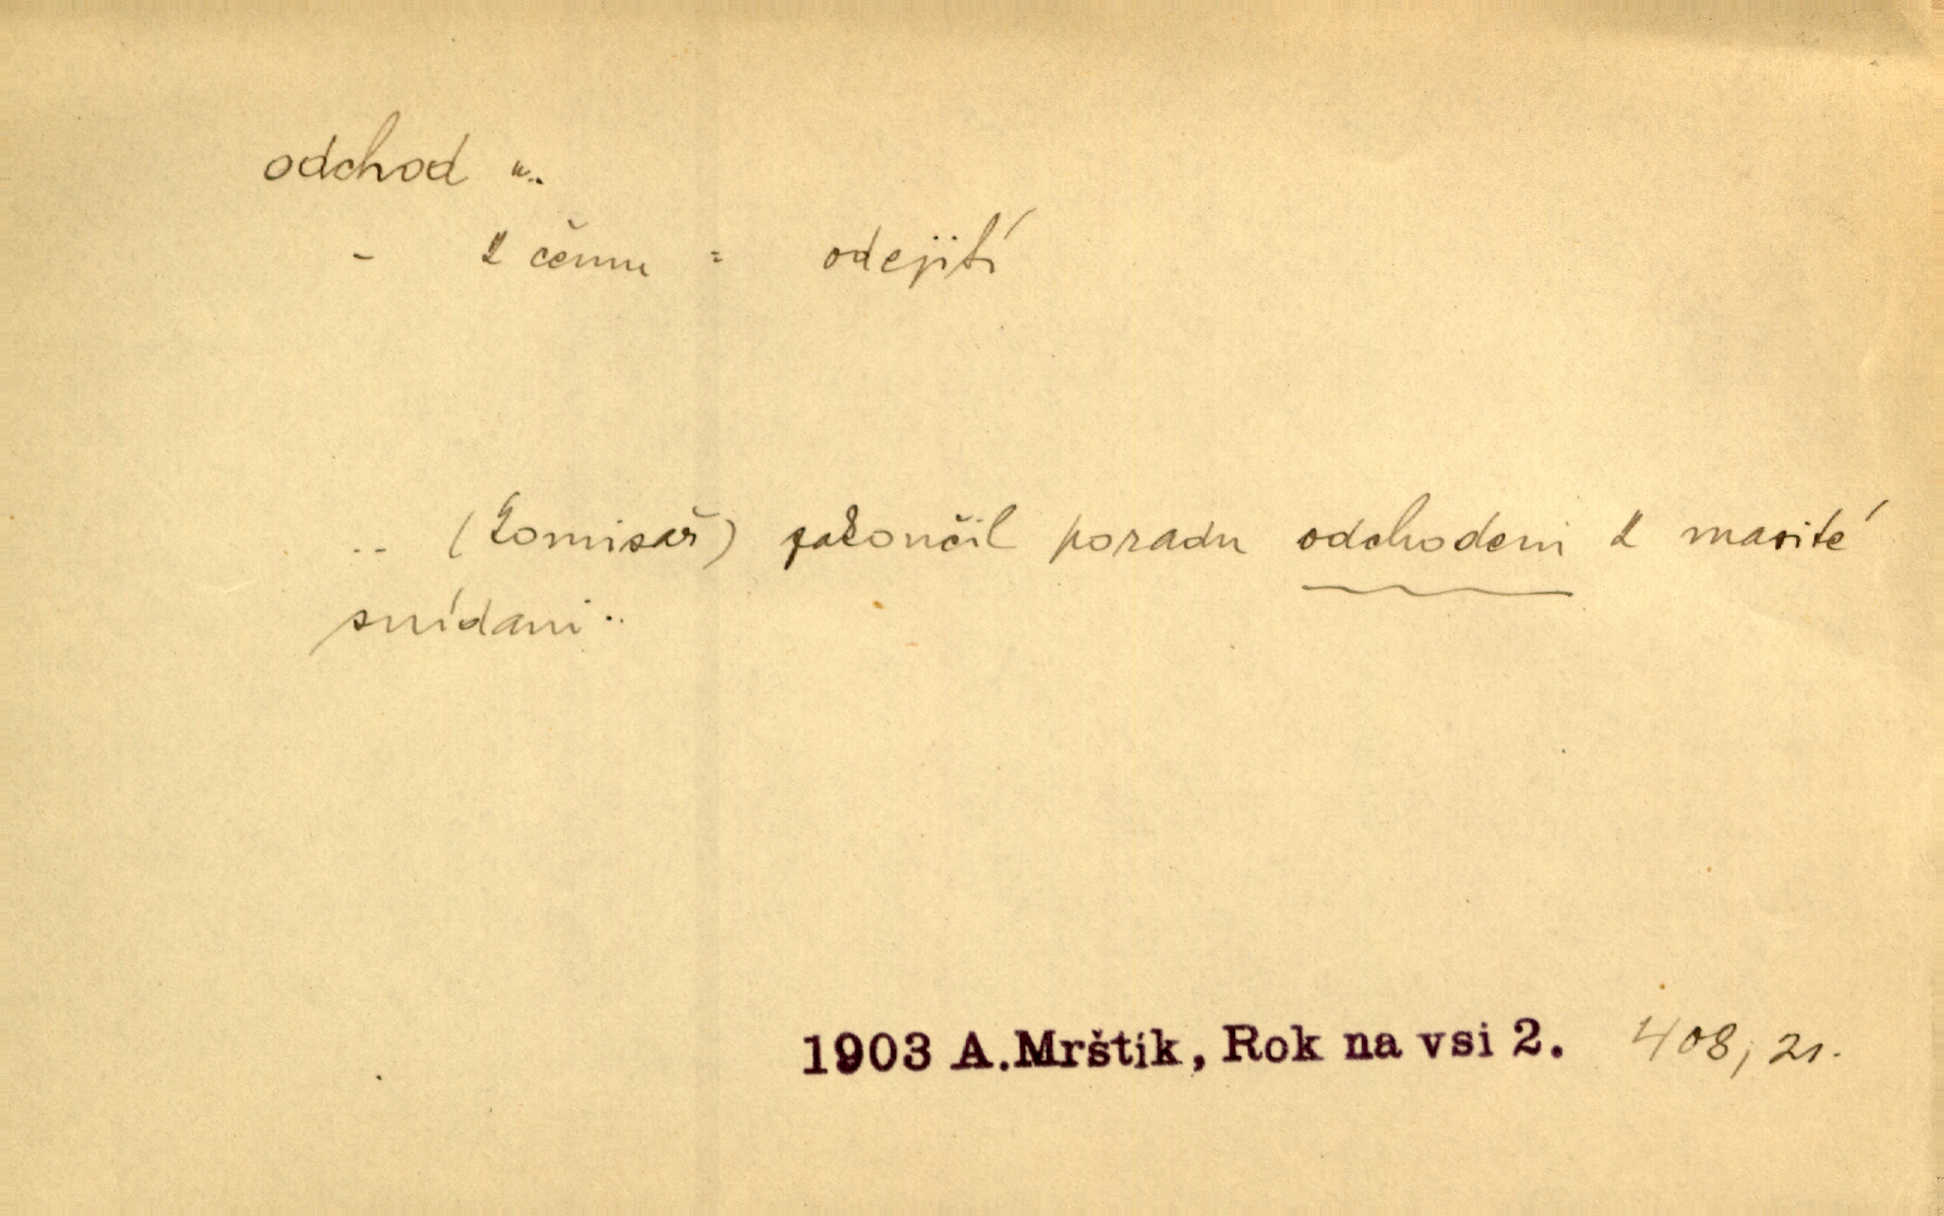 odchod "..
- k čemu = odejití
.. (komisař) zakončil poradu odchodem k masité
snídani ..
1903 A.Mrštík, Rok na vsi 2. 408, 21.